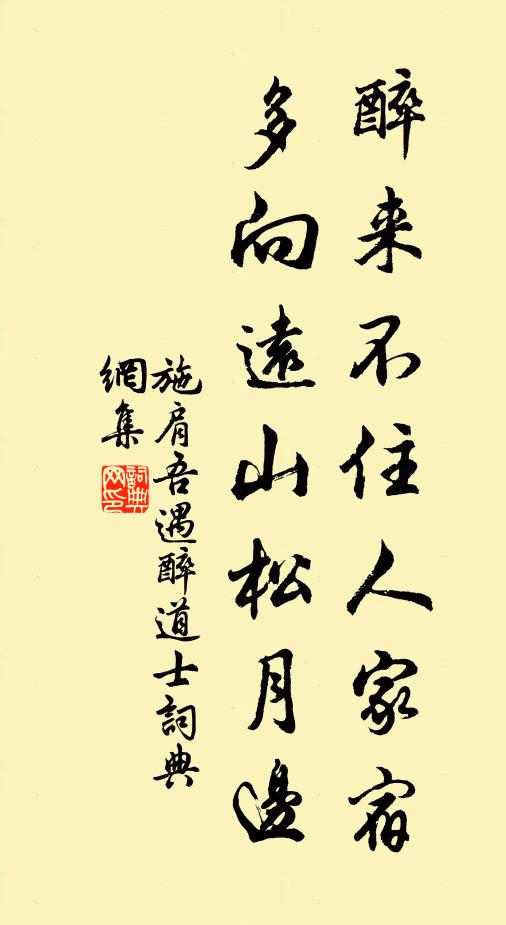 醉来不住人家宿
多向遠山松月邊
施肩吾遇醉道士詞典
網集
詞典
网印